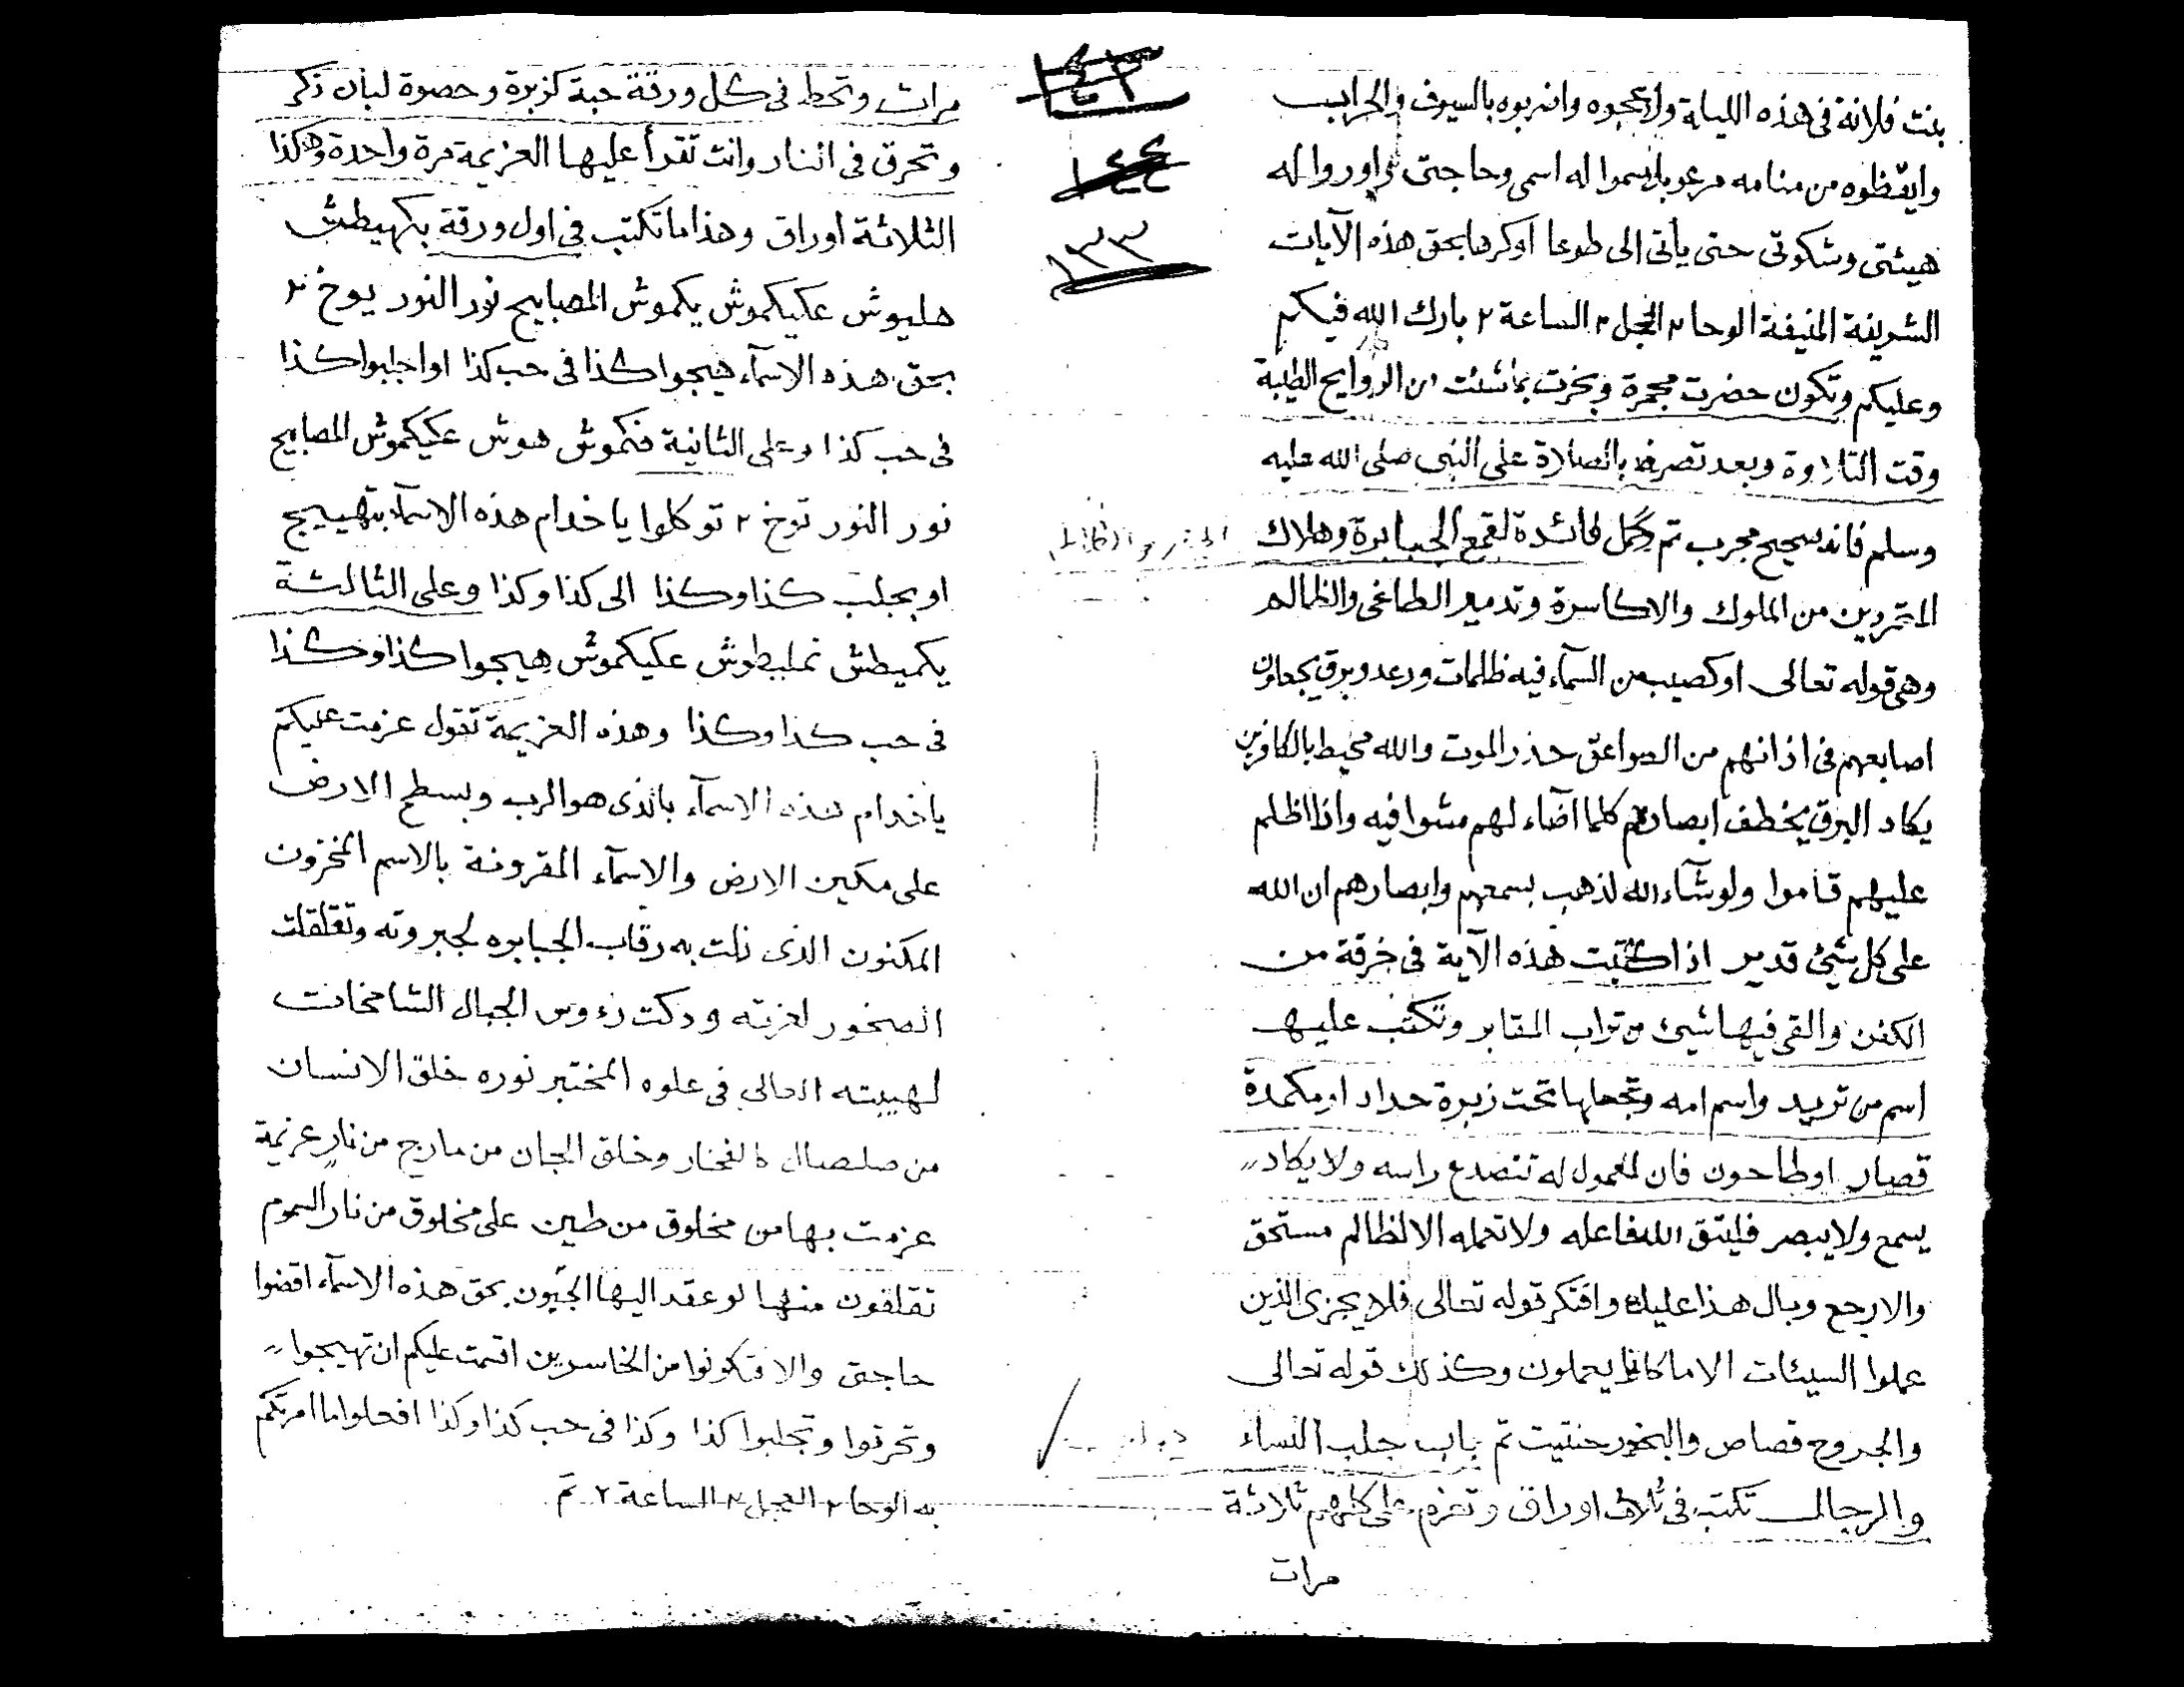 بنت فلانة فى هذه الليلة وازعجوه واضربوه بالسيوف والحراب
وايقظوه من منامه مرعوبا وسموا له اسمى وحاجتى واوروا له
هيئتى وشكوتى حتى يأتى الى طوعا اوكرها بحق هذه الآيات
الشريفة المنيفة الوحا ٢ العجل ٢ الساعة ٢ بارك الله فيكم
وعليكم وتكون حضرت مجمرة وبخرت بماشئت من الروايح الطيبة
وقت التلاوة وبعد تصرف بالصلاة على النبى صلى الله عليه
وسلم فانه صحيح مجرب تم وكمل فائدة لقمع الجبابرة وهلاك
المتمردين من الملوك والاكاسرة وتدمير الطاغى والظالم
وهى قوله تعالى اوكصيب من السمآء فيه ظلمات ورعد وبرق يجعلون
اصابعهم فى اذانهم من الصواعق حذر الموت والله محيط بالكافرين
يكاد البرق يخطف ابصارهم كلما اضاء لهم مشوا فيه واذا اظلم
عليهم قاموا ولو شآء الله لذهب بسمعهم وابصارهم ان الله
على كل شئ قدير اذا كتبت هذه الآية فى خرقة من
الكفن والقى فيها شيئ من تراب المقابر وتكتب عليها
اسم من تريد واسم امه وتجعلها تحت زبرة حداد او مكمدة
قصار او طاحون فان المعمول له تنصدع راسه ولا يكاد
يسمع ولا يبصر فليتق الله فاعله ولا تعمله الا لظالم مستحق
والا رجع وبال هذا عليك وافتكر قوله تعالى فلا يجزى الذين
عملوا السيئات الا ما كانوا يعملون وكذلك قوله تعالى
والجروح قصاص والبخور حنتيت تم باب جلب النساء
والرجال تكتب فى ثلاث اوراق وتعزم على كلهم ثلاثة
مرات
١٤٤
١٣٣
مرات وتحط فى كل ورقة حبة كزبرة وحصوة لبان ذكر
وتحرق فى النار وانت تقرأ عليها العزيمة مرة واحدة وهكذا
الثلاثة اوراق وهذا ما تكتب فى اول ورقة بكهيطش
هليوش عكيكموش يكموش المصابيح نور النور يوخ ٢
بحق هذه الاسمآء هيجوا كذا فى حب كذا او اجلبوا كذا
فى حب كذا وعلى الثانية فنكموش هوش عكيكموش المصابيح
نور النور توخ ٢ توكلوا يا خدام هذه الاسمآء بتهييج
او بجلب كذا وكذا الى كذا وكذا وعلى الثالثة
يكميطش نمليطوش عكيكموش هيجوا كذا وكذا
فى حب كذا وكذا وهذه العزيمة تقول عزمت عليكم
يا خدام هذه الاسمآء بالذى هو الرب وبسطح الارض
على مكين الارض والاسمآء المقرونة بالاسم المخزون
المكنون الذى ذلت به رقاب الجبابره لجبروته وتقلقلت
الصخور لعزته ودكت رءوس الجبال الشامخات
لهيبته العالى فى علوه المختبر نوره خلق الانسان
من صلصال كالفخار وخلق الجان من مارج من نار عزيمة
عزمت بها من مخلوق من طين على مخلوق من نار السموم
تقلقون منها لو عقد اليها الجيون بحق هذه الاسمآء اقضوا
حاجتى والا فتكونوا من الخاسرين اقسمت عليكم ان تهيجوا
وتحرقوا وتجلبوا كذا وكذا فى حب كذا وكذا افعلوا ما امرتكم
به الوحا ٢ العجل ٢ الساعة ٢ تم